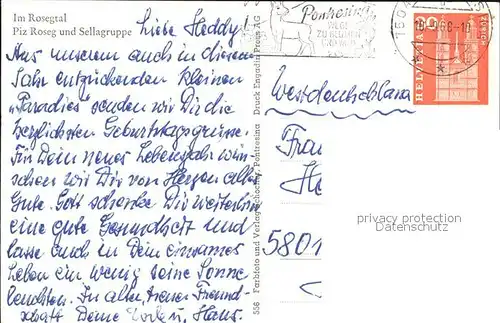 Im Rosegtal
Piz Roseg und Sellagruppe
Liebe Heddy!
Aus unserem auch in diesem
Jahr entzückenden kleinen
„Paradies" senden wir Dir die
herzlichsten Geburtstagsgrüsse.
Für Dein neues Lebensjahr wün-
schen wir Dir von Herzen alles
Gute. Gott schenke Dir weiterhin
eine gute Gesundheit und
lasse auch in Dein einsames
Leben ein wenig seine Sonne
leuchten. In alter, treuer Freund-
schaft Deine und Hans.
556 Farbfoto und Verlag Pontresina Druck Engadin Press AG
Pontresina
HELVETIA
Westdeutschland
Frau
He
5801
privacy protection
Datenschutz